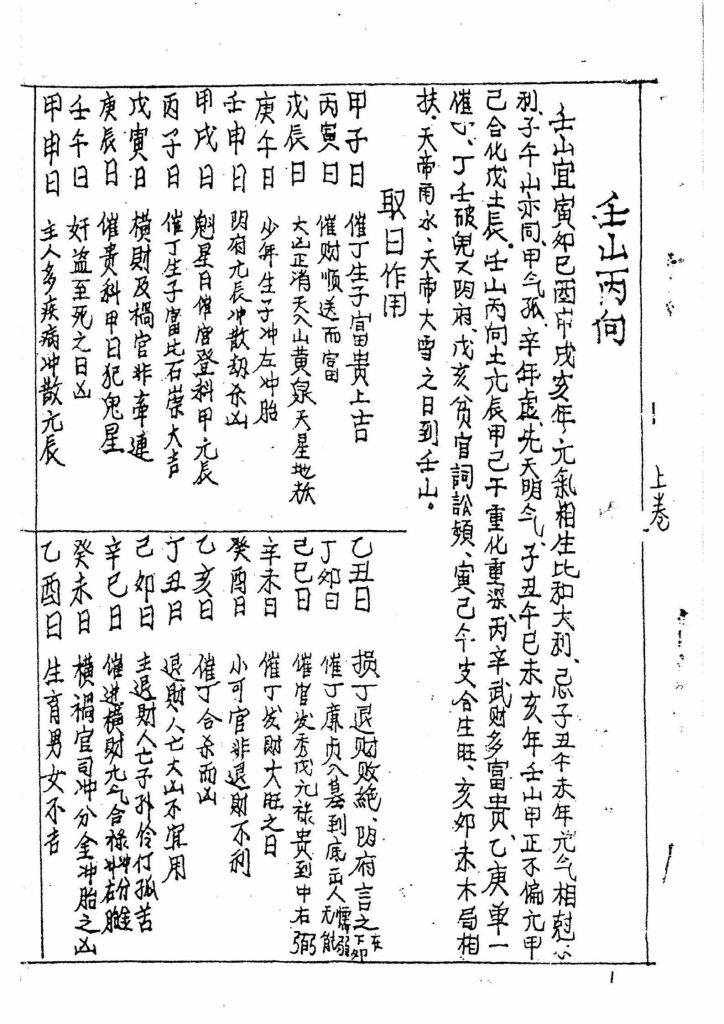 上卷
壬山丙向
壬山宜寅卯巳酉戌亥年元氣相生比和大利、忌子丑午未年元气相尅
利、子午山亦同、甲气孤、辛年虚、先天明气、子丑午巳未亥年壬山甲正不偏亢甲
己合化戊土辰。壬山丙向土亢辰甲己干重化重深、丙辛武财多富贵、乙庚单一
催、丁壬破鬼又阴府、戊亥贫官詞訟頻、寅己午支合生旺、亥卯未木局相
扶、天帝雨水、天帝大雪之日到壬山。
取日作用
甲子日 催丁生子富贵上吉
丙寅日 催财顺送而富
戊辰日 大凶正消灭入山黄泉天星地
庚午日 少年生子冲左冲胎
壬申日 阴府亢辰冲散劫杀凶
甲戌日 魁星日催官登科甲元辰
丙子日 催丁生子富比石崇大吉
戊寅日 横財及禍官非牵連
庚辰日 催贵科甲日犯鬼星
壬午日 奸盗至死之日凶
甲申日 主人多疾病冲散元辰
乙丑日 损丁退财败絶、阴府言之
丁卯日 催丁廉贞入墓到底出人懦弱无能
己巳日 催官发秀戊元禄贵到中右弼
辛未日 催丁发财大旺之日
癸酉日 小可官非退财不利
乙亥日 催丁合杀而凶
丁丑日 退財人亡大凶不宜用
己卯日 主退财人亡子孙伶仃孤苦
辛巳日 催进横财元气合禄冲右分金
癸未日 横禍官司冲分金冲胎之凶
乙酉日 生育男女不吉
1